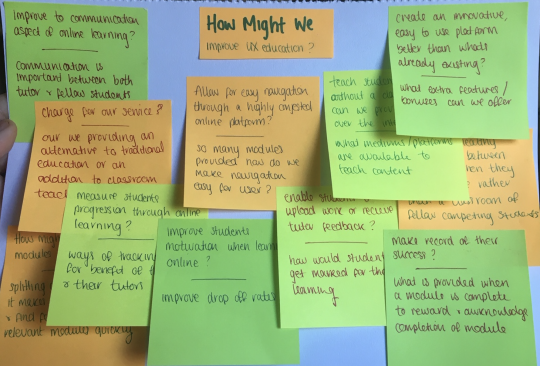 How Might We
improve UX education?
improve to communication
aspect of online learning?
communication is
important between both
tutor & fellow students
create an innovative,
easy to use platform
better than whats
already existing?
what extra features/
bonuses can we offer
Allow for easy navigation
through a highly congested
online platform?
so many modules
provided how do we
make navigation
easy for user?
teach
without a
can we
over the
what mediums/platforms
are available to
teach content
charge for our service?
our we providing an
alternative to traditional
education or an
addition to classroom
between
when they
rather
classroom of
fellow competing students
measure students
progression through online
learning?
ways of tracking
for benefit of
& their tutors
improve students
motivation when
online?
improve drop off rates
enable
upload work or receive
tutor feedback?
how would
get marked for
learning
make record of their
success?
what is provided when
a module is complete
to reward & acknowledge
completion of module
How
modules
it
relevant modules quickly